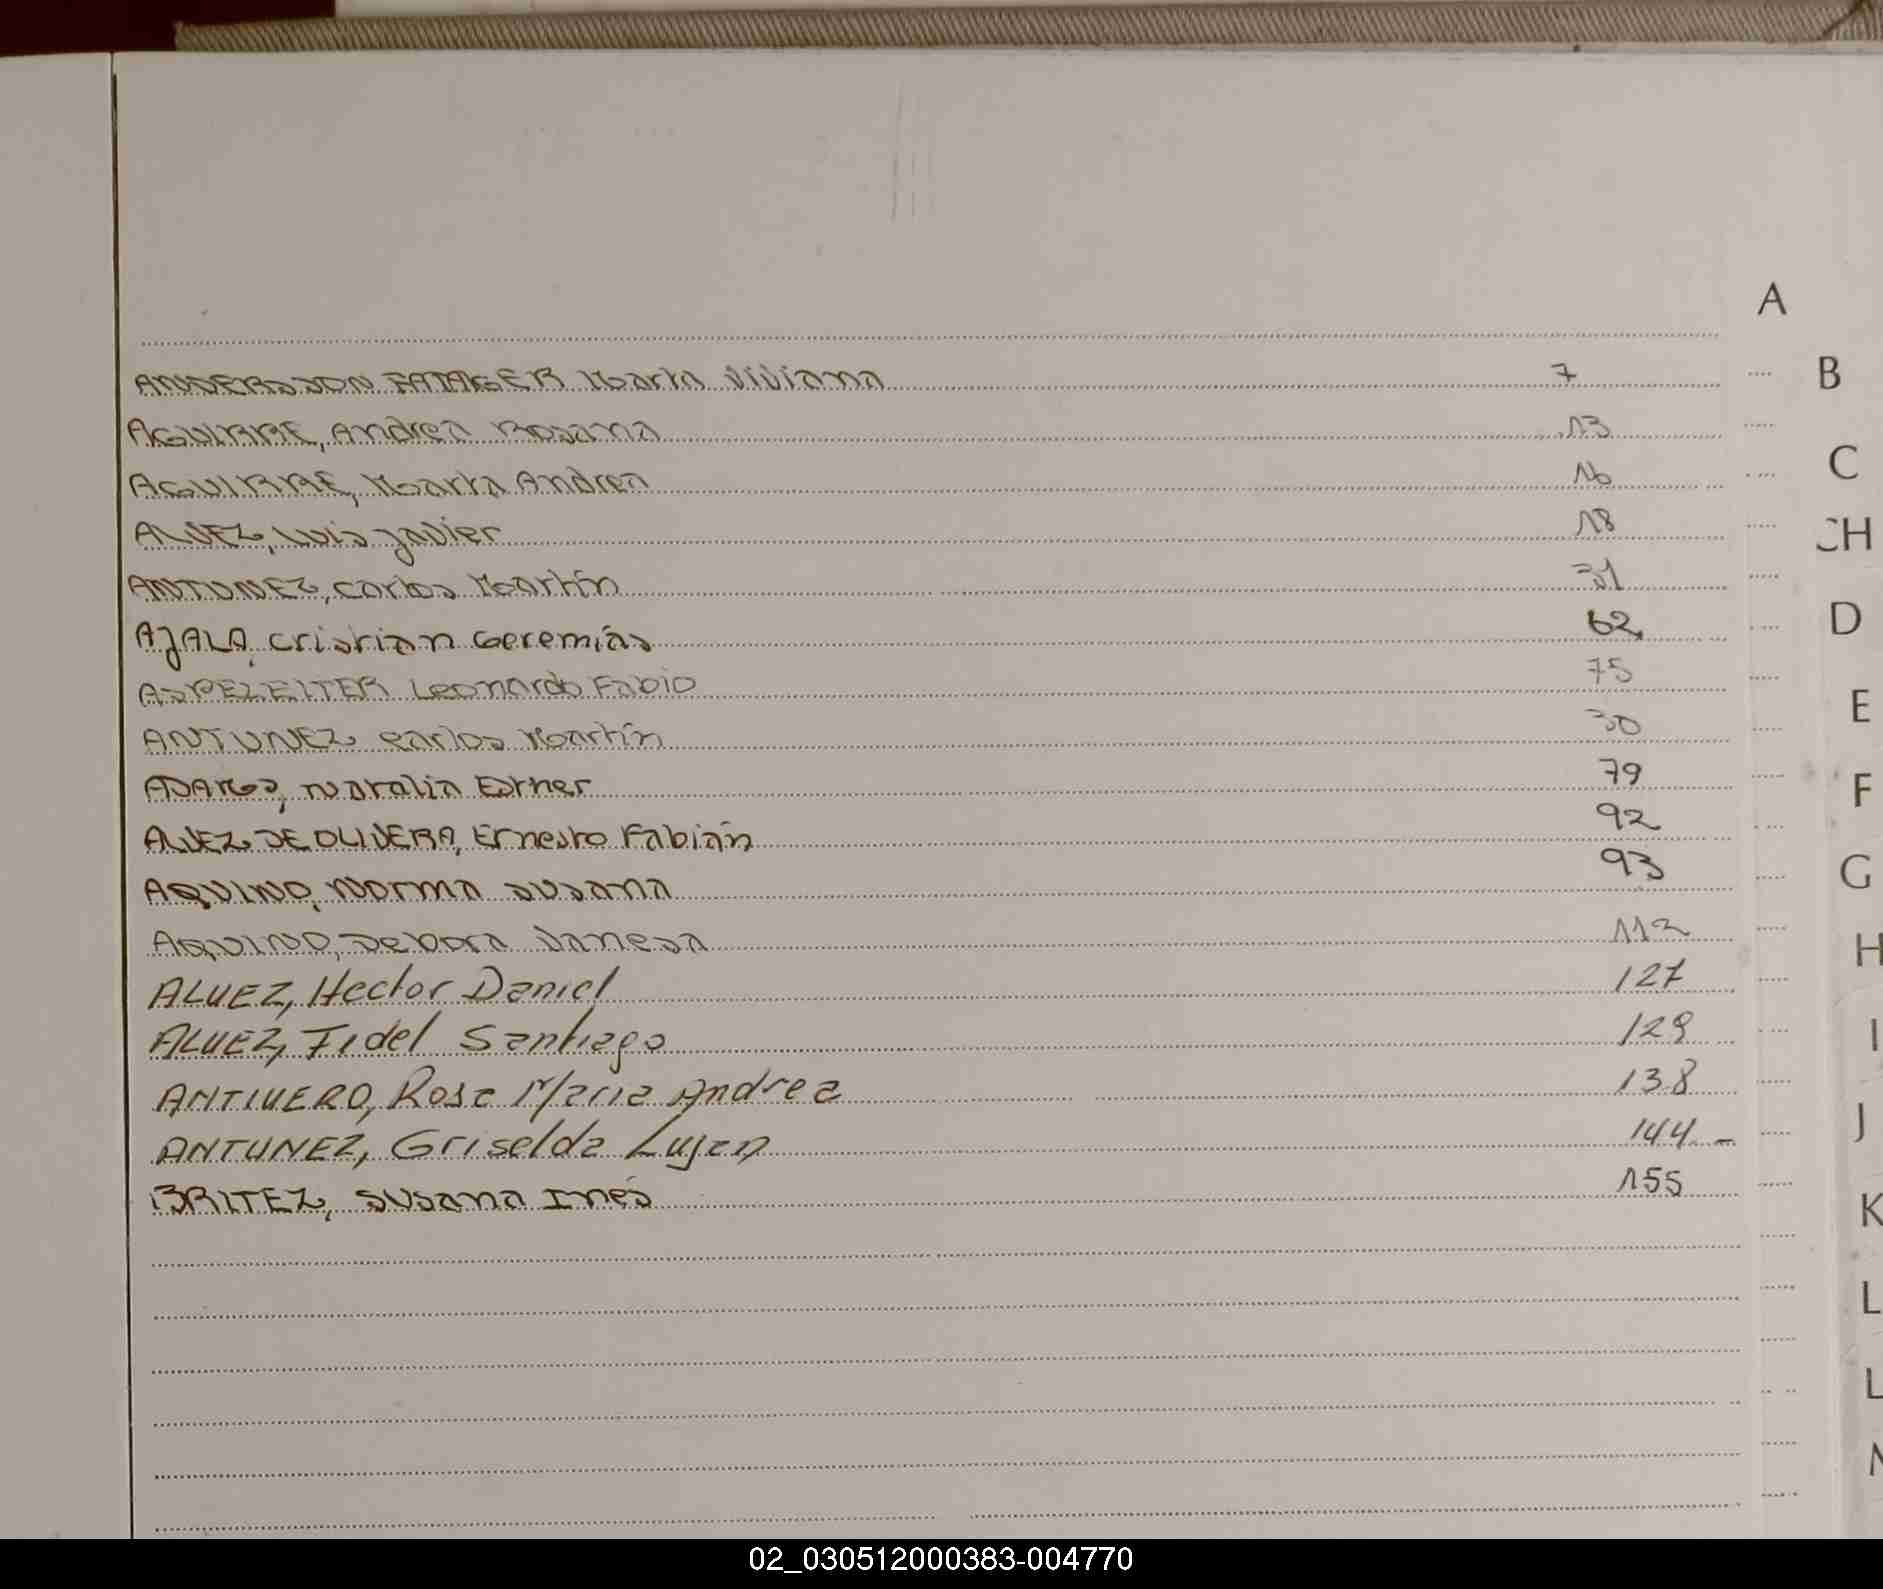 A
ANDERSSON FATAGER Marta Viviana 7
AGUIRRE, Andrea Rosana 13
AGUIRRE, Marta Andrea 16
ALVEZ, Luis Javier 18
ANTUNEZ, Carlos Martín 31
AJALA, Cristian Geremías 62
ASPEZEITER Leonardo Fabio 75
ANTUNEZ Carlos Martín 30
Natalia Esther 79
ALVEZ DE OLIVERA, Ernesto Fabián 92
AQUINO, Norma Susana 93
AQUINO, Debora Vanesa 112
ALVEZ, Hector Daniel 127
ALVEZ, Fidel Santiago 129
ANTIVERO, Rosa Maria Andrea 138
ANTUNEZ, Griselda Lujan 144 -
BRITEZ, Susana Inés 155
B
C
CH
D
E
F
G
H
I
J
K
L
L
02_030512000383-004770